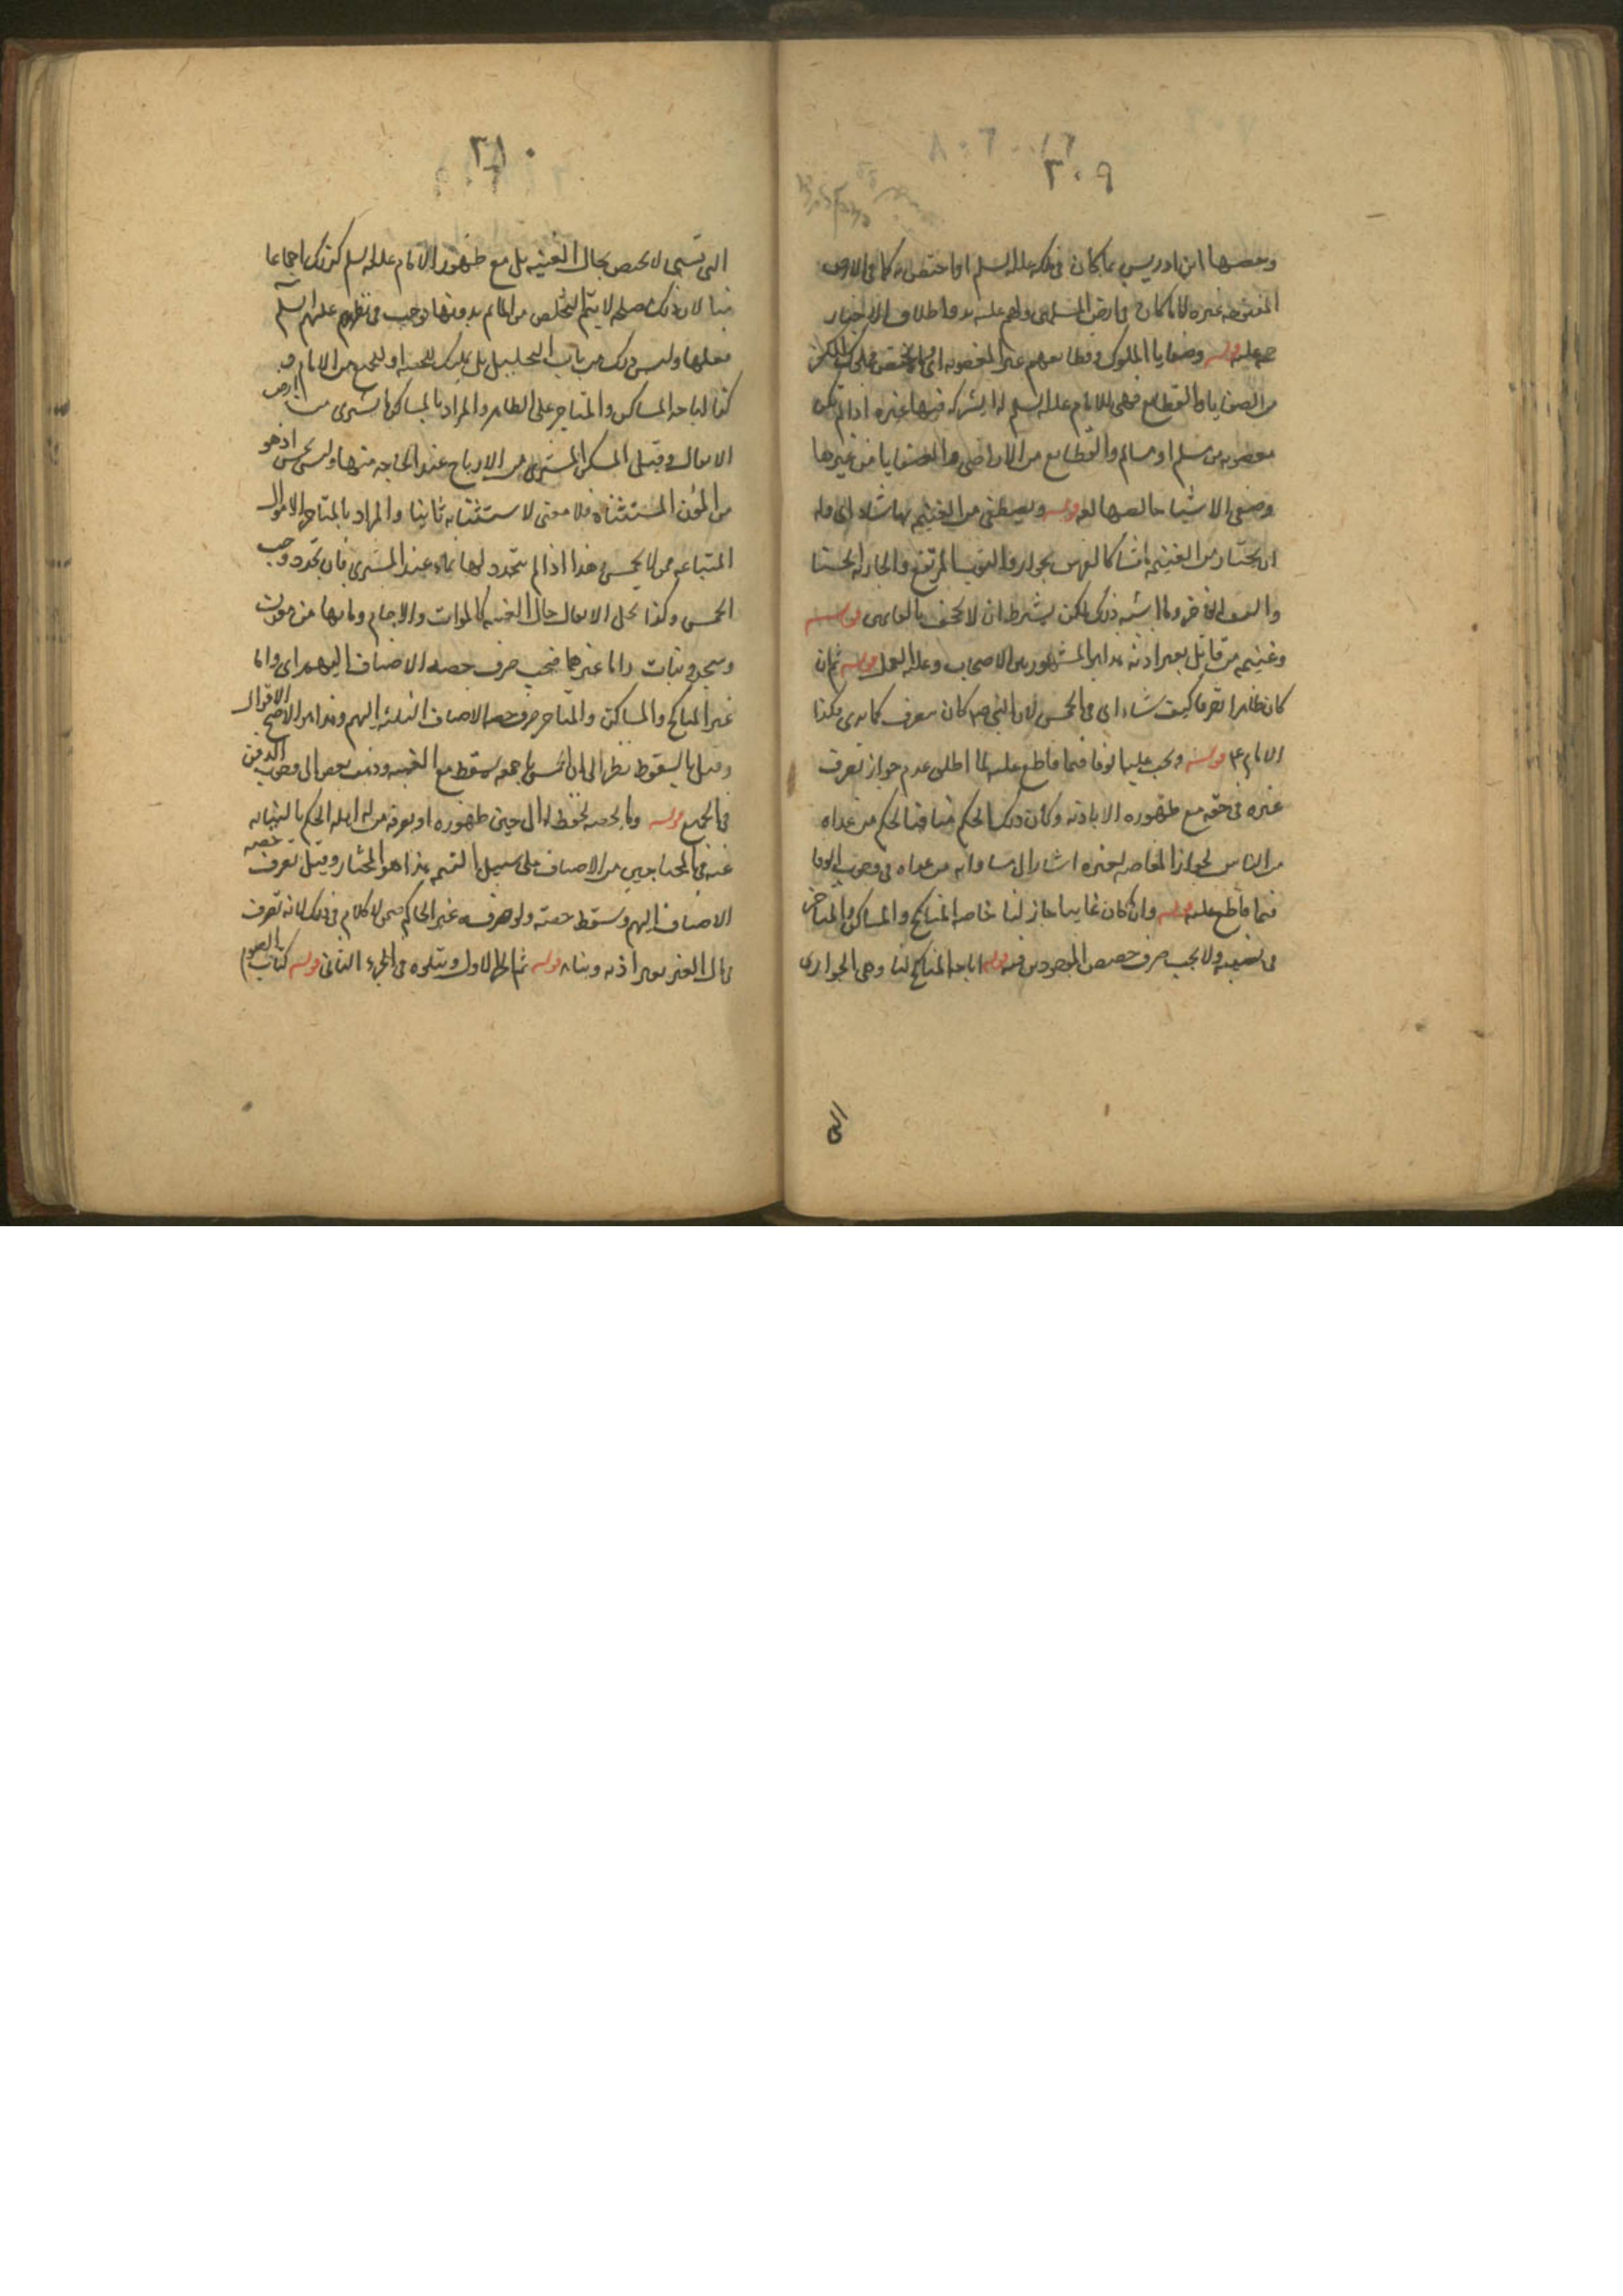 ٢٠٩
وخصها ابن ادريس بما كان في ملكه عليه السلم او اختص به كما في الارض
المفتوحة عنوة لا ما كان في ارض المسلمين واطلاق الاخبار
حجة عليه قوله وصفايا الملوك وقطايعهم غير المغصوبة اي ما
من الصفايا والقطايع فهي للامام عليه السلم لا يشركه فيها غيره اذا لم تكن
مغصوبة من مسلم او مسالم والقطايع من الاراضي والصفايا من غيرها
وصفي الاشيا خالصها لغة قوله ويصطفي من الغنيمة ما شاء اي له
ان يختار من الغنيمة ما شا كالفرس الجواد والثوب المرتفع والجارية الحسنا
والسيف الفاخر وما اشبه ذلك لكن يشترط ان لا يجحف بالغانمين قوله
وغنيمة من قاتل بغير اذنه هذا هو المشهور بين الاصحاب وعليه العمل قوله ثم ان
كان ظاهرا تصرف كيف شاء اي في الخمس لان النبي صم كان يتصرف كما يرى وكذا
الامام ع م قوله ويجب علينا الوفا فيما قاطع عليه لما اطلق عدم جواز تصرف
غيره في حقه مع ظهوره الا باذنه وكان ذلك الحكم منافيا لحكم من عداه
من الناس لجواز المقاصة لغيره اشار الى مساواته من عداه في وجوب الوفا
فيما قاطع عليه قوله وان كان غايبا جاز لنا خاصة المناكح والمساكن والمتاجر
في نصيبه ولا يجب صرف حصص الموجودين فيه قوله اباحة المناكح لنا وهي الجواري
التي
٢١٠
التي تسبى لا يختص بحال الغيبة بل مع ظهور الامام عليه السلم كذلك اجماعا
منا لان ذلك مصلحة لا يتم التخلص من الماثم بدونها فوجب في نظرهم عليهم السلم
فعلها وليس ذلك من باب التحليل بل تمليك للحصة او للجميع من الامام
كذا اباحة المساكن والمتاجر على الظاهر والمراد بالمساكن ما يشترى من ارض
الانفال وقيل المسكن المشترى من الارباح عند الحاجة منها وليس بحسن اذ هو
من المؤن المستثناة فلا معنى لاستثنائه ثانيا والمراد بالمتاجر الاموال
المتباعة ممن لا يخمس هذا اذا لم يتجدد لها نماء عند المشتري فان تجدد وجب
الخمس وكذا تحل الانفال حال الغيبة كالموات والاجام وما بها من موت
وشجر ونبات واما غيرهما فيجب صرف حصة الاصناف اليهم اي واما
غير المناكح والمساكن والمتاجر صرف حصة الاصناف الثلثة اليهم وهذا هو الاصح الاقوال
وقيل بالسقوط نظرا الى ان الخمس باجمعه يسقط مع الغيبة وذهب بعض الى وجوب الدفن
في الجميع قوله وما يخصه يحفظ له الى حين ظهوره او يصرفه من له اهلية الحكم بالنيابة
عنه في المحتاجين من الاصناف على سبيل التتمة هذا هو المختار وقيل تصرف حصته
الاصناف اليهم وتسقط حصته ولو صرفه غير الحاكم ضمن لا كلام في ذلك لانه تصرف
في مال الغير بغير اذنه ونيابة قوله تم الجزء الاول ويتلوه في الجزء الثاني قوله كتاب الصوم